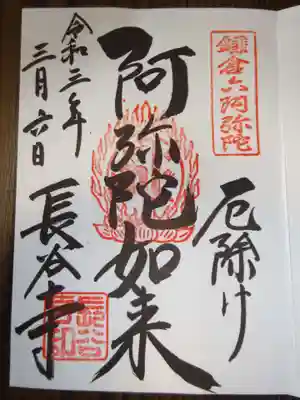 鎌倉六阿弥陀
厄除け
阿弥陀如来
令和三年
三月六日
長谷寺